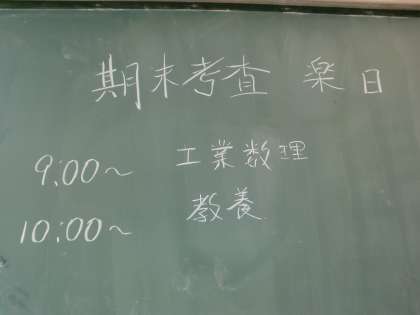 期末考査 楽日
9:00~ 工業数理
10:00~ 教養